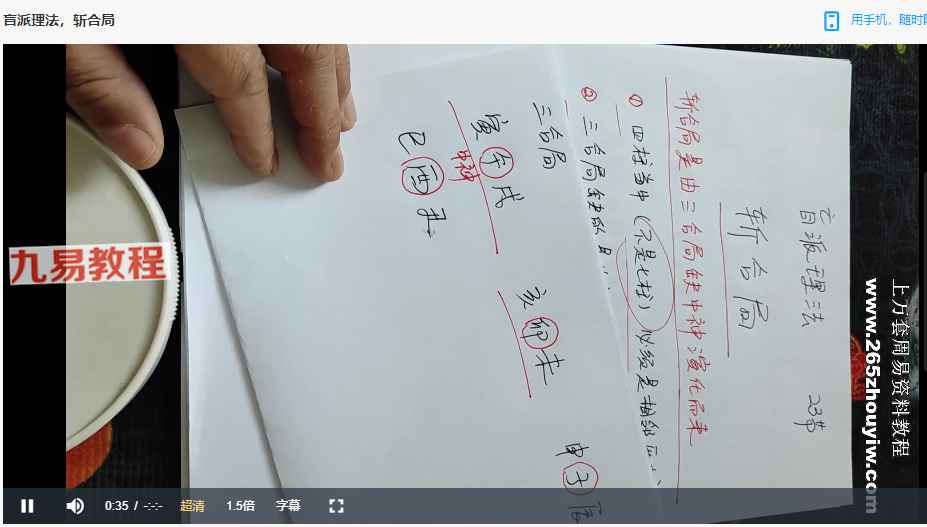 盲派理法，斩合局
用手机，随时
盲派理法 23节
斩合局
斩合局是由三合局缺中神演化而来
① 四柱当中（不是七柱）必须是相邻
② 三合局缺
三合局
寅午戌
中神
巳酉丑
亥卯未
申子辰
九易教程
上万套周易资料教程
www.265zhouyiw.com
0:35 / -:-:-
超清
1.5倍
字幕